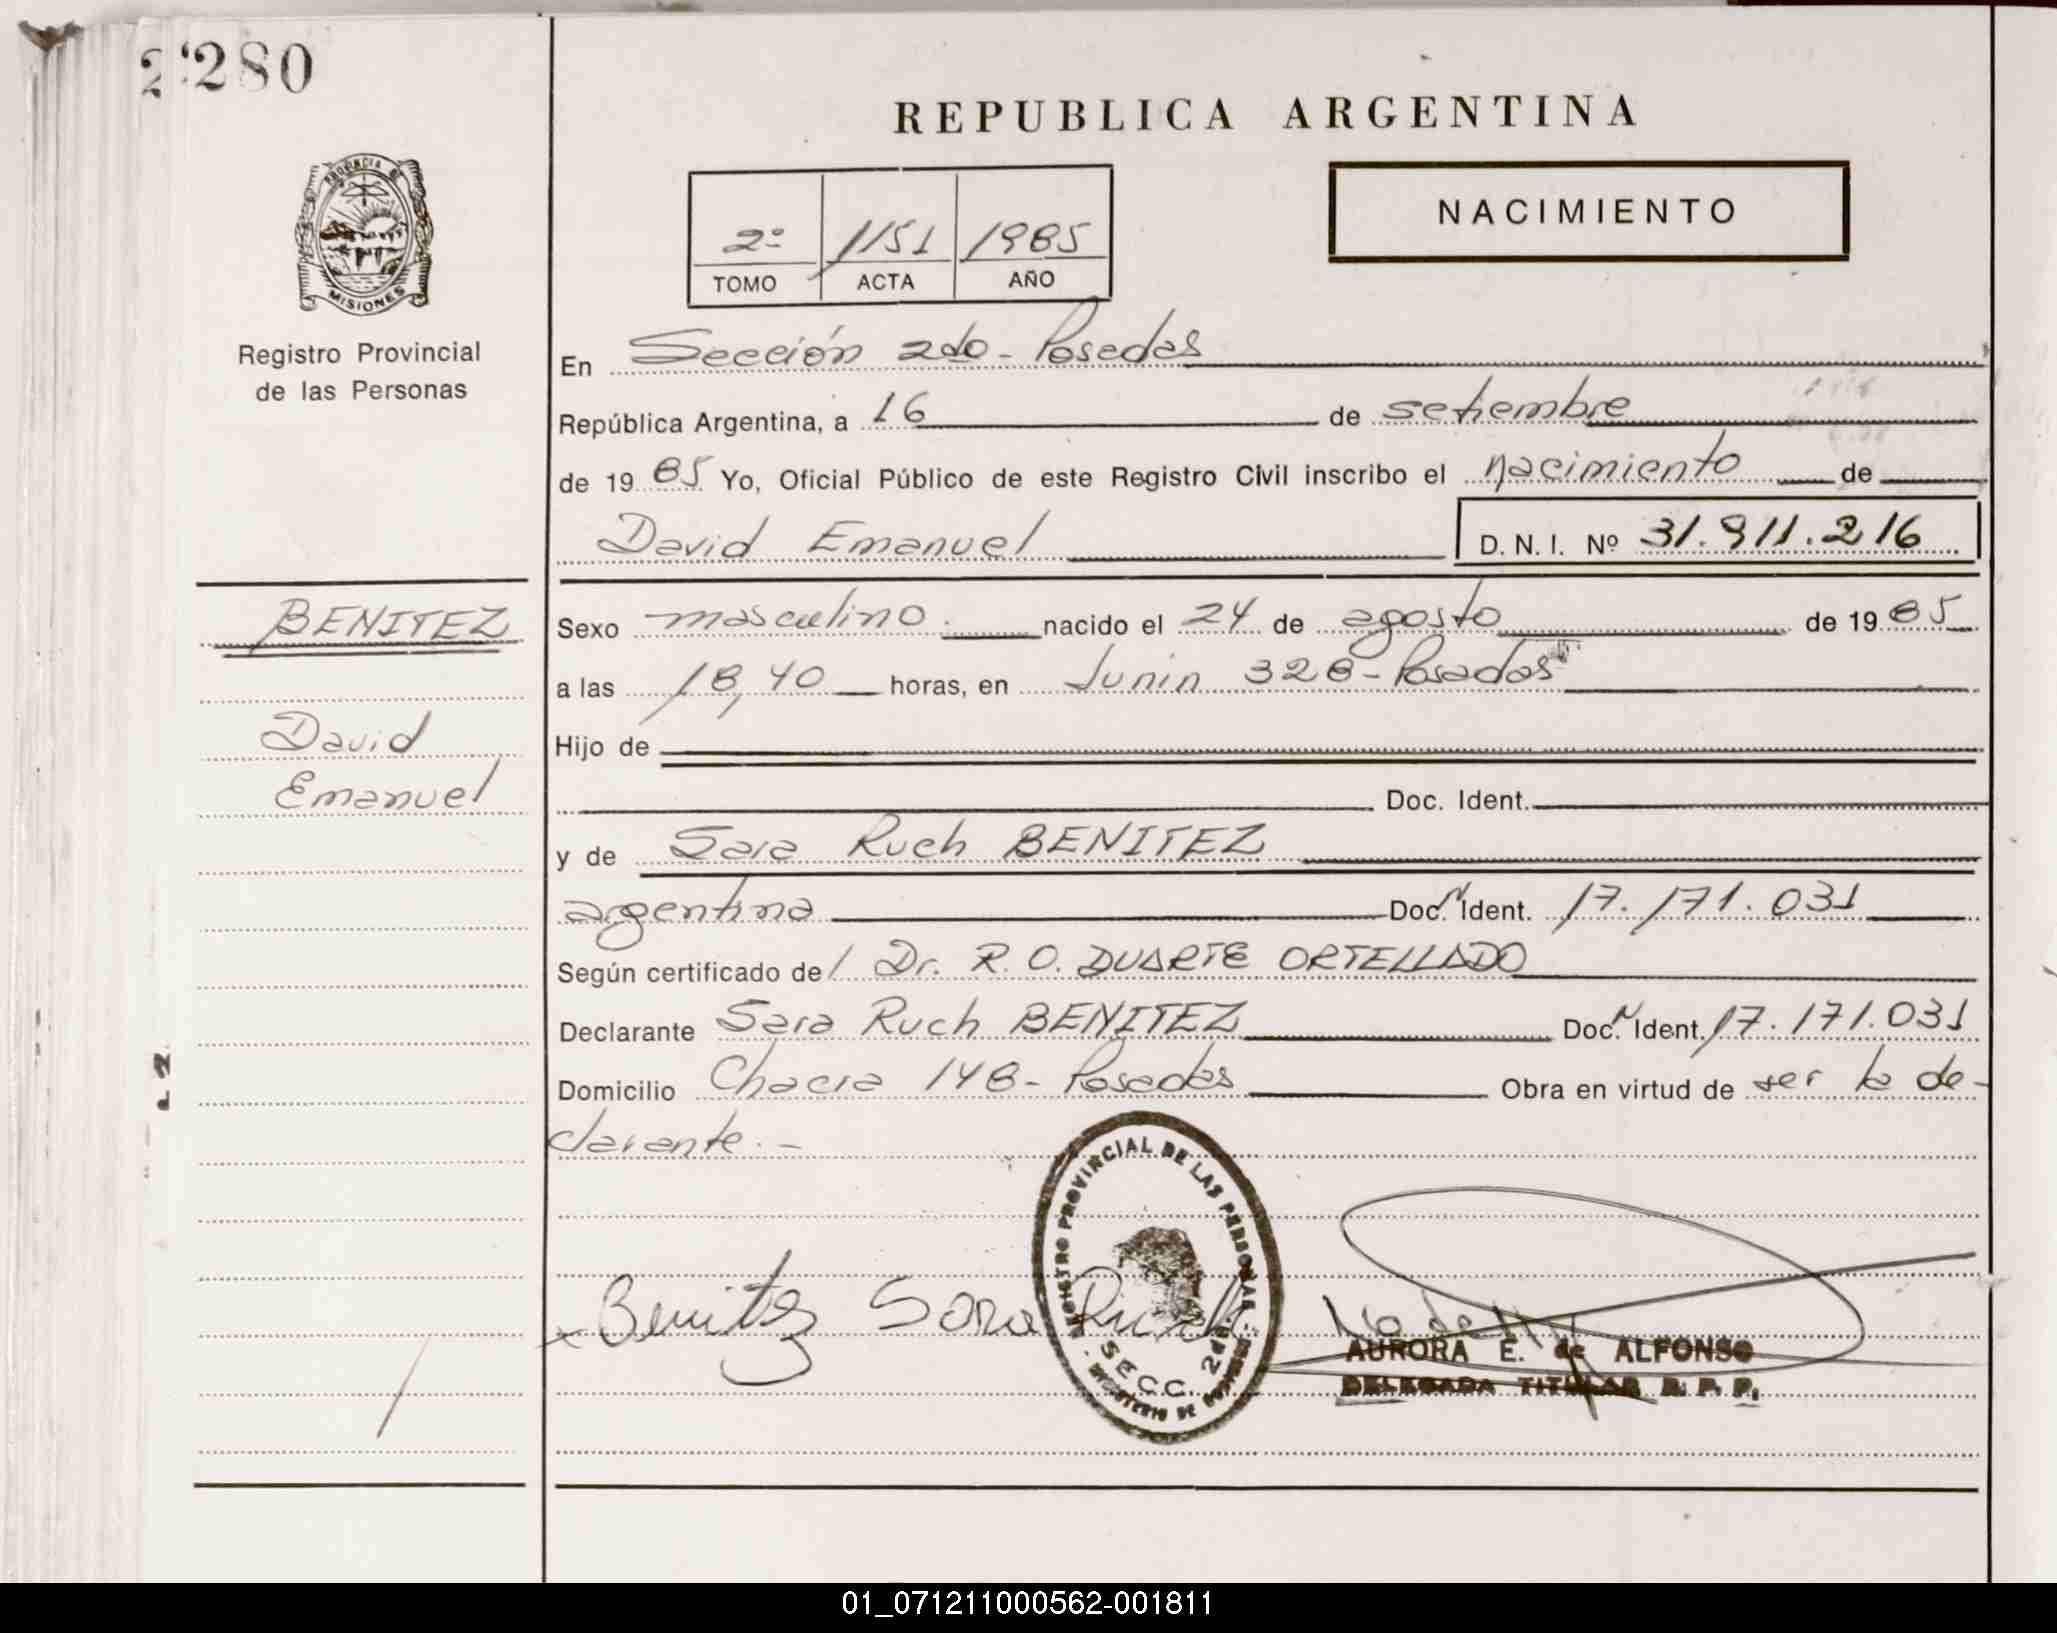 280
REPUBLICA ARGENTINA
PROVINCIA DE
MISIONES
Registro Provincial
de las Personas
2º 1151 1985
TOMO ACTA AÑO
NACIMIENTO
En Sección 2do - Posadas
República Argentina, a 16 de setiembre
de 1985 Yo, Oficial Público de este Registro Civil inscribo el nacimiento de
David Emanuel D. N. I. Nº 31.911.216
BENITEZ
David
Emanuel
Sexo masculino. nacido el 24 de agosto de 1985
a las 18,40 horas, en Junin 328 - Posadas
Hijo de
Doc. Ident.
y de Sara Ruch BENITEZ
argentina Doc. N Ident. 17.171.031
Según certificado de / Dr. R. O. DUARTE ORTELLADO
Declarante Sara Ruch BENITEZ Doc. N Ident. 17.171.031
Domicilio Chacra 148 - Posadas Obra en virtud de ser la de-
clarante. -
REGISTRO PROVINCIAL DE LAS PERSONAS
SECC. 2da.
MINISTERIO DE GOBIERNO
x Benitez Sara Ruch
AURORA E. de ALFONSO
DELEGADA TITULAR R. P. P.
01_071211000562-001811